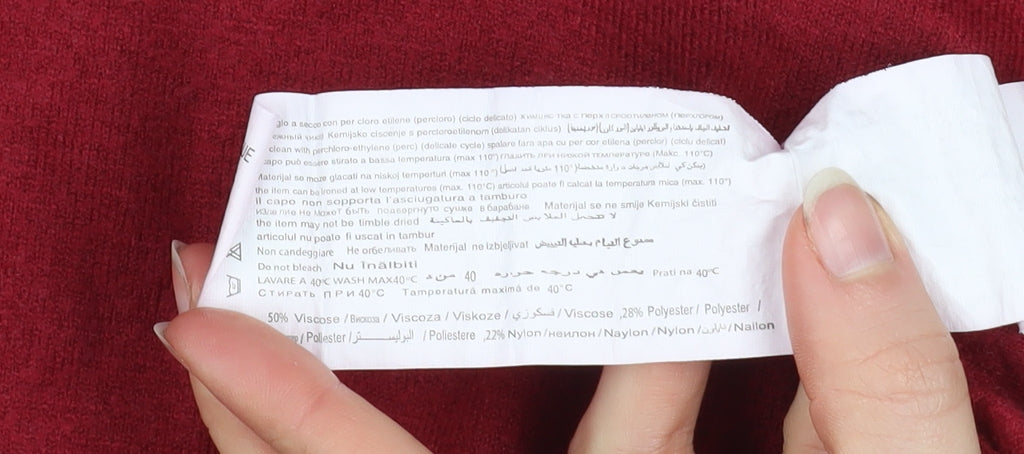 gio a secco con per cloro etilene (percloro) (ciclo delicato)
Kemijsko ciscenje s percloroetilenom (delikatan ciklus)
clean with perchloro-ethylene (perc) (delicate cycle) spalare fara apa cu per cor etilena (perclor) (ciclu delicat)
capo può essere stirato a bassa temperatura (max 110°) ГЛАДИТЬ ПРИ НИЗКОЙ ТЕМПЕРАТУРЕ (Макс. 110°C)
Materijal se moze glacati na niskoj temperturi (max 110°)
the item can be ironed at low temperatures (max. 110°C) articolul poate fi calcat la temperatura mica (max. 110°)
il capo non sopporta l'asciugatura a tamburo
не может быть подвергнуто сушке в барабане Materijal se ne smije Kemijski čistiti
the item may not be timble dried لا تحتمل الملابس التجفيف بالماكينة
articolul nu poate fi uscat in tambur
Non candeggiare Не отбеливать Materijal ne izbjeljivat
Do not bleach Nu înălbiti
LAVARE A 40°C WASH MAX40°C 40 Prati na 40°C
Стирать ПРИ 40°C Tamperatură maximă de 40°C
50% Viscose / Вискоза / Viscoza / Viskoze / فسكوزي / Viscose ,28% Polyester / Polyester /
/ Poliester / البوليستر / Poliestere ,22% Nylon / нейлон / Naylon / Nylon / نايلون / Nailon